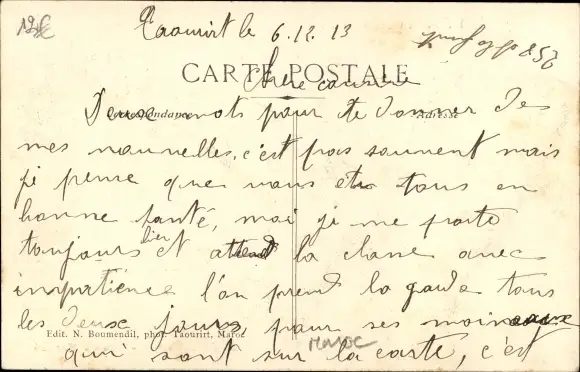 Taourirt le 6.12.13
CARTE POSTALE
Chère cousine
Correspondance
Adresse
Deux mots pour te donner de
mes nouvelles, c'est pas souvent mais
je pense que vous êtes tous en
bonne santé, moi je me porte
toujours bien et attend la classe avec
impatience l'on prend la garde tous
les deux jours, pour ses
Edit. N. Boumendil, phot. Taourirt, Maroc
Maroc
qui sont sur la carte, c'est